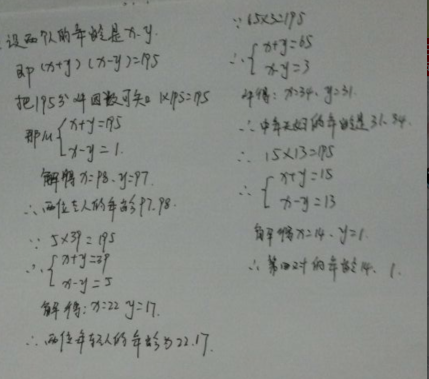 设两个人的年龄是x、y.
即(x+y)(x-y)=195
把195分解因数可知:1×195=195
那么{x+y=195
x-y=1.
解得x=98、y=97.
∴两位老人的年龄97、98.
∵5×39=195
∴{x+y=39
x-y=5
解得:x=22 y=17.
∴两位年轻人的年龄为22.17.
∵65×3=195
∴{x+y=65
x-y=3
解得:x=34、y=31.
∴中年夫妇的年龄是31、34.
∵15×13=195
∴{x+y=15
x-y=13
解得x=14、y=1.
∴第四对的年龄14、1.